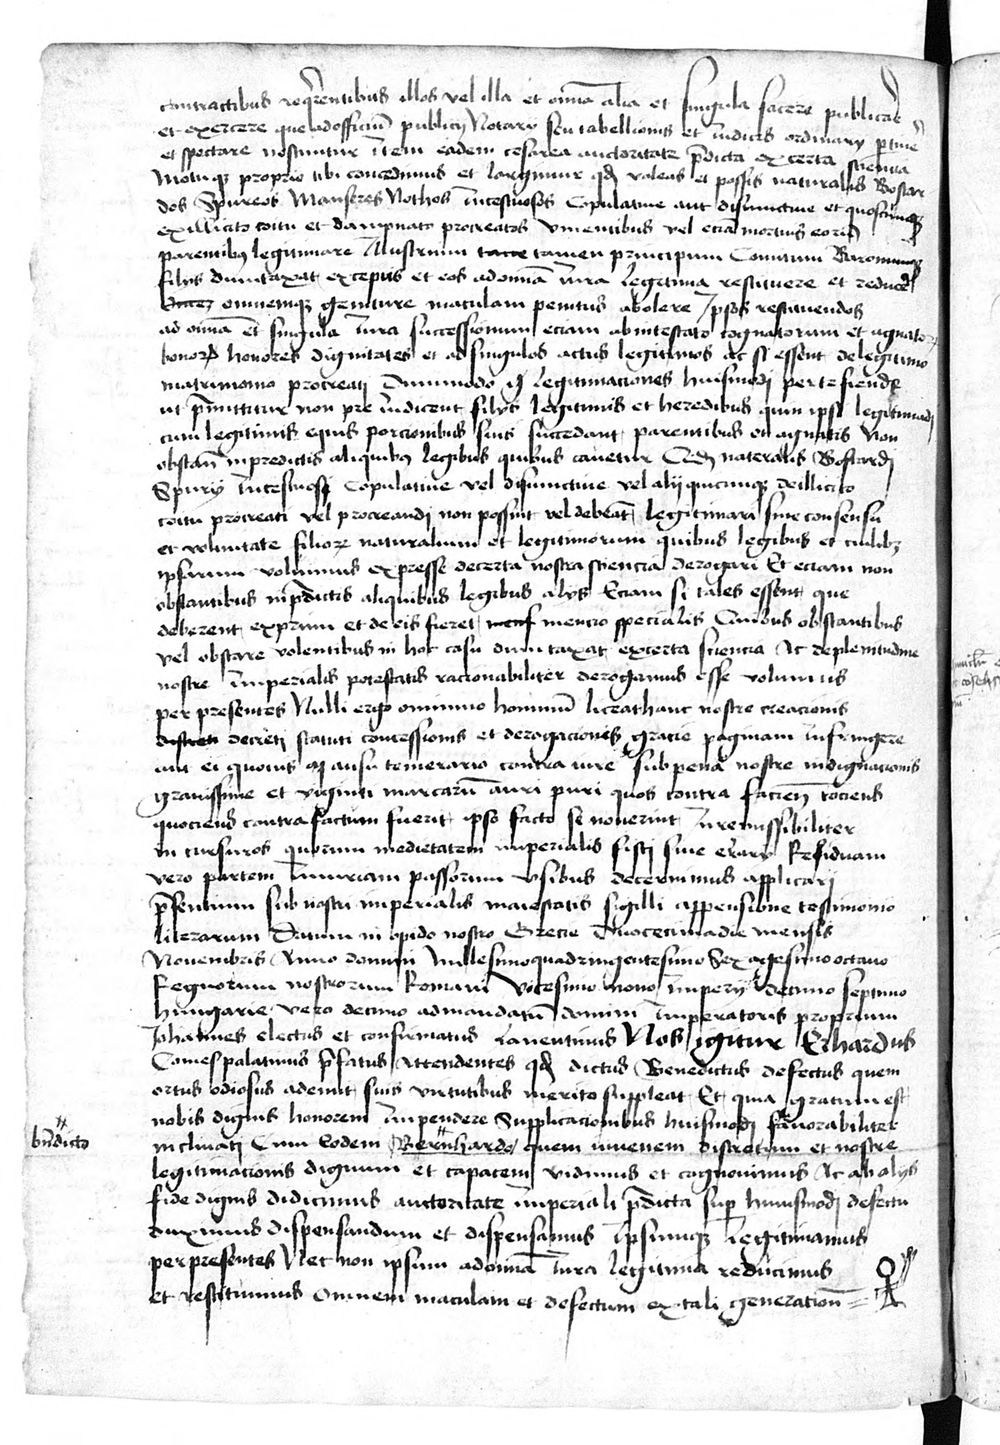 contractibus reqrentibus illos vel illa et oīa alia et singula facere publicare
et exercere que ad officiū publicij Notarij seu tabellionis et iudicis ordinarij ptine
et spectare noscuntur Item eadem cesarea auctoritate pdicta ex certa sciencia
Motuqz proprio tibi concedimus et largimur qd valeas et possis naturales Bostar
dos Spureos Manseres Nothos Incestuosos Copulatiue aut disiunctiue et quoscūqz
ex illicito coitu et dampnato procreatos viuentibus vel eciā mortuis eorū
parentibus legitimare Illustrium tamen principum Comitum Baronum
filijs dumtaxat exceptis et eos ad omnia iura legitima restituere et reducere
omnemqz geniture maculam penitus abolere Ipsos restituendos
ad omīa et singula Iura successionum eciam ab intestato cognatorum et agnator
bonorū honores dignitates et ad singulos actus legitimos ac si essent de legitimo
matrimonio procreati Dummodo legitimaciones huiusmodi per te fiende
ut pmittitur non pre iudicent filijs legitimis et heredibus quin ipsi legitimadi
cum legitimis equis porcionibus suis succedant parentibus et agnatis Non
obstan in predictis aliquibus legibus quibus cauetur Qd naturalis Bostardi
Spurij Incestuosi Copulatiue vel disiunctiue vel alij quicunqz de illicito
coitu procreati vel procreandi non possint vel debeat legitimari sine consensu
et voluntate filiorz naturalium et legitimorum quibus legibus et cuilibz
ipsarum volumus expresse de certa nostra sciencia derogari Et eciam non
obstantibus in pdictis aliquibus legibus alijs Eciam si tales essent que
deberent exprimi et de eis fieret mencio specialis Quibus obstantibus
vel obstare volentibus in hoc casu dumtaxat ex certa sciencia Ac de plenitudine
nostre Imperialis potestatis racionabiliter derogamus esse volumus
per presentes Nulli ergo omnino hominū liceat hanc nostre creacionis
decreti statuti concessionis et derogacionis gracie paginam Infringere
aut ei quouis ausu temerario contra ire sub pena nostre indignacionis
grauissime et viginti marcarū auri puri quos contra facien tociens
quociens contra factum fuerit ipso facto se nouerint Irremissibiliter
in cursuros quorum medietatem imperialis fisci siue erarij Residuam
vero partem Iniuriam passorum vsibus decernimus applicari
psentium sub nostri imperialis maiestatis sigilli appensione testimonio
literarum Datum in opido nostro Grecie Duocecima die mensis
Nouembris Anno domini Millesimoquadringentesimo Sexagesimo octauo
Regnorum nostrorum Romani vicesimo nono Imperij decimo septimo
hungarie vero decimo ad mandatū domini Imperatoris proprium
Johannes electus et confirmatus Lauentinus Nos igitur Erhardus
Comes palatinus pfatus Attendentes qd dictus Benedictus defectus quem
ortus odiosus ademit suis virtutibus merito suppleat Et quia gratum est
nobis dignis honorem Impendere Supplicacionibus huiusmodi fauorabiliter
inclinati Cum Eodem Bernhardo quem iuuenem discretum et nostre
bndicto
legitimacionis dignum et capacem vidimus et cognouimus Ac ab alijs
fide dignis didicimus auctoritate imperiali pdicta sup huiusmodi defectu
duximus dispensandum et dispensamus Ipsumqz legitimamus
per presentes Nec non ipsum ad omīa Iura legitima reducimus
et restituimus Omnem maculam et defectum ex tali generation